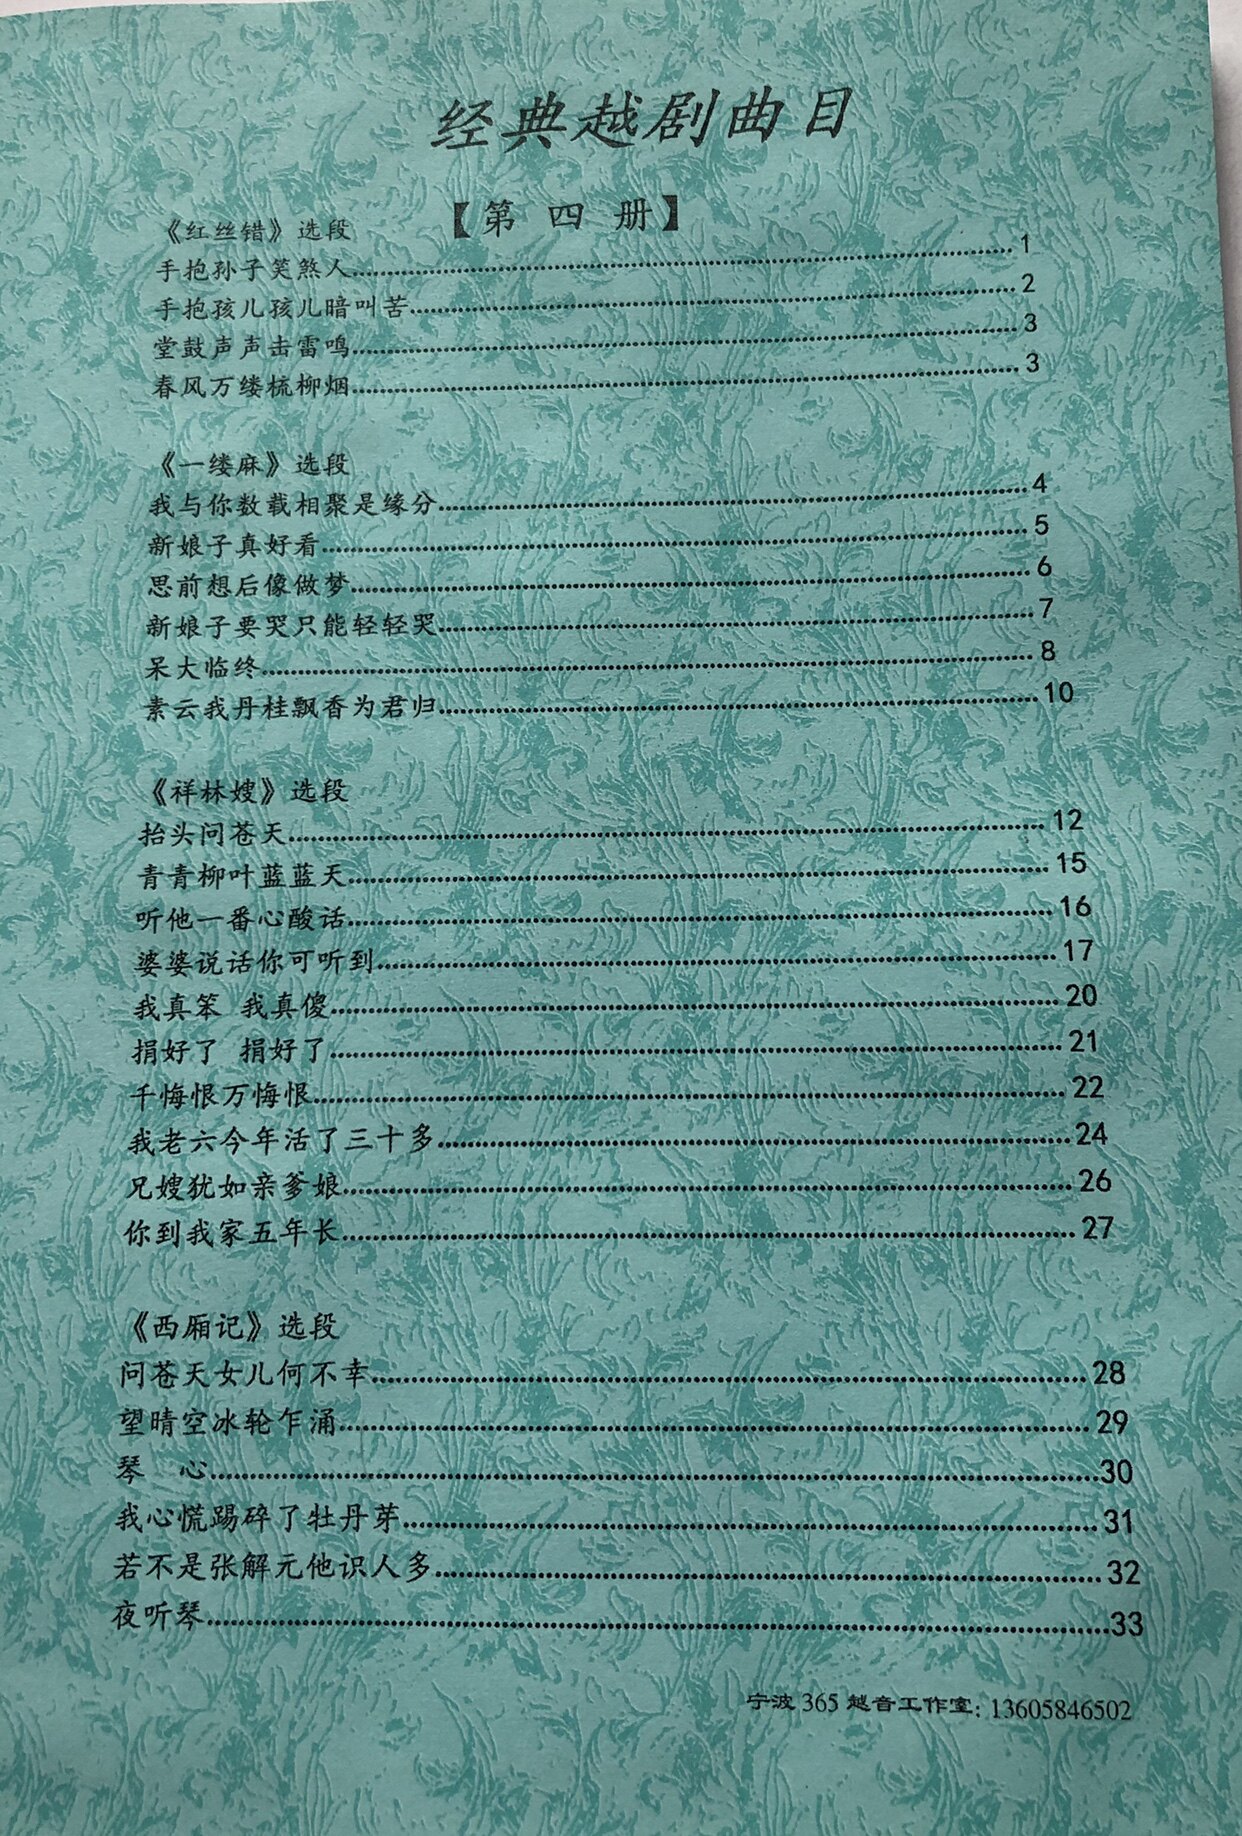 经典越剧曲目
【第 四 册】
《红丝错》选段
手抱孙子笑煞人........1
手抱孩儿孩儿暗叫苦........2
堂鼓声声击雷鸣........3
春风万缕梳柳烟........3
《一缕麻》选段
我与你数载相聚是缘分........4
新娘子真好看........5
思前想后像做梦........6
新娘子要哭只能轻轻哭........7
呆大临终........8
素云我丹桂飘香为君归........10
《祥林嫂》选段
抬头问苍天........12
青青柳叶蓝蓝天........15
听他一番心酸话........16
婆婆说话你可听到........17
我真笨 我真傻........20
捐好了 捐好了........21
千悔恨万悔恨........22
我老六今年活了三十多........24
兄嫂犹如亲爹娘........26
你到我家五年长........27
《西厢记》选段
问苍天女儿何不幸........28
望晴空冰轮乍涌........29
琴 心........30
我心慌踢碎了牡丹芽........31
若不是张解元他识人多........32
夜听琴........33
宁波 365 越音工作室: 13605846502